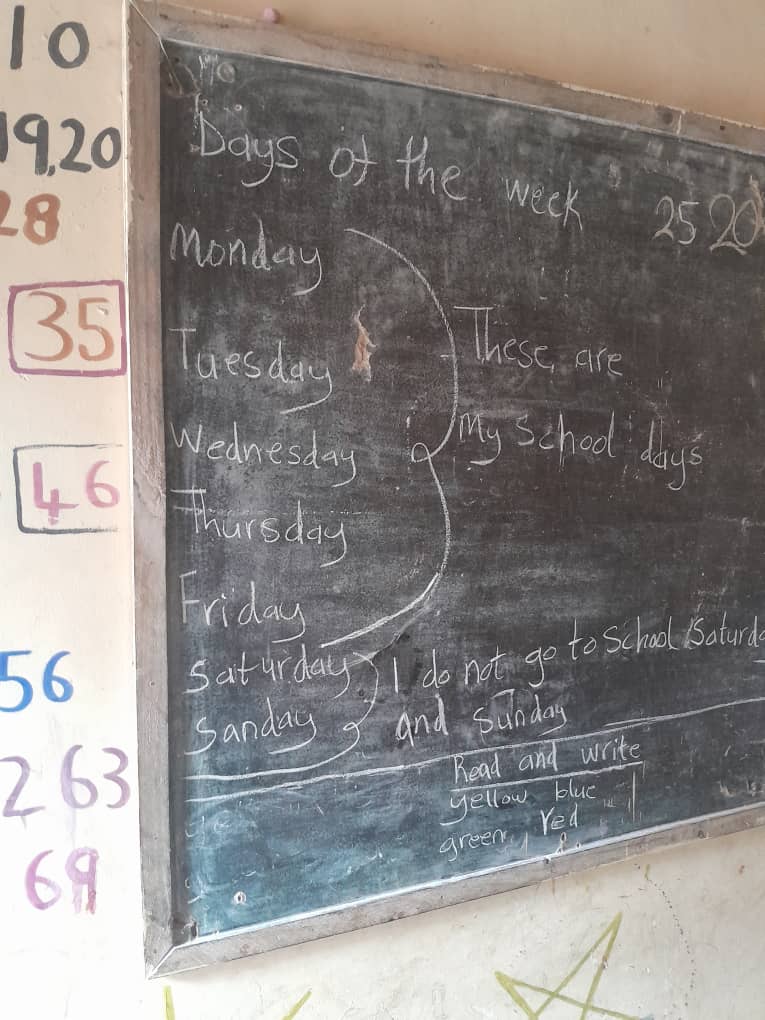 10
19,20
28
35
46
56
2 63
69
Days of the week
25 20
Monday
Tuesday
These are
Wednesday
My School days
Thursday
Friday
Saturday I do not go to School Saturda
Sanday and Sunday
Read and write
yellow blue
green, red